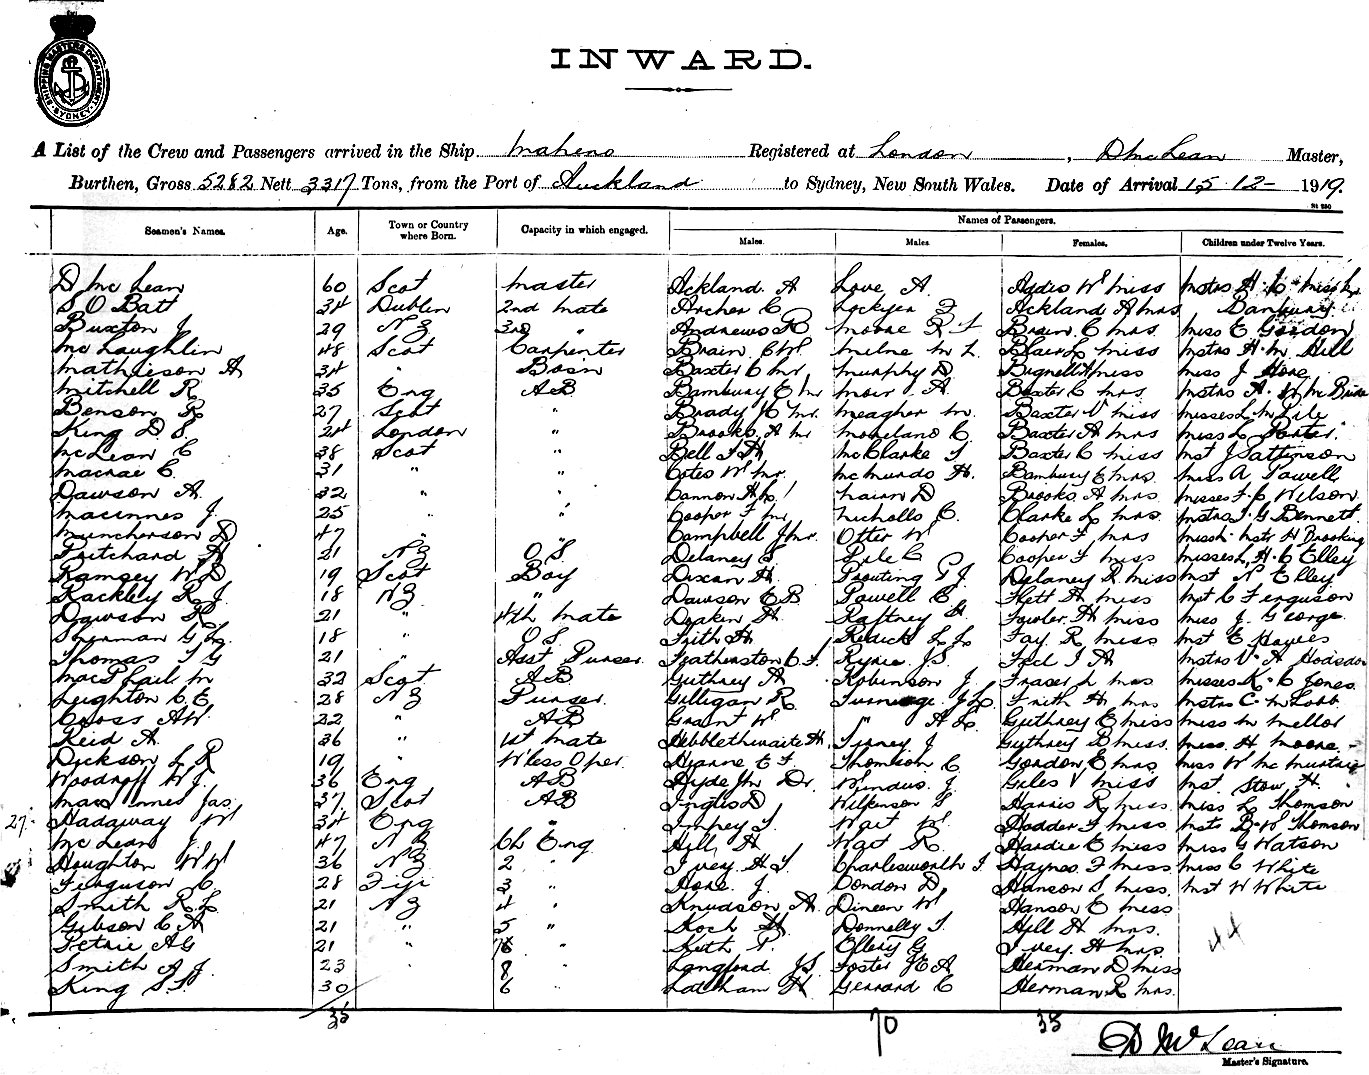 SHIPPING MASTERS DEPARTMENT SYDNEY
INWARD.
A List of the Crew and Passengers arrived in the Ship Maheno Registered at London, D McLean Master,
Burthen, Gross 5282 Nett 3317 Tons, from the Port of Auckland to Sydney, New South Wales. Date of Arrival 15 12 - 1919.
Names of Passengers.
Seamen's Names. Age. Town or Country where Born. Capacity in which engaged. Males. Males. Females. Children under Twelve Years.
D Mc Lean 60 Scot Master Ackland A Love A Addis W Miss Mstrs H. C
S O Batt 34 Dublin 2nd Mate Archer C Lockyer F Ackland A Mrs Banbury
Buxton J 29 NZ 3rd " Andrews R Moore R Brain C Mrs Miss E Gordon
Mc Laughlin 48 Scot Carpenter Brain C W Milne M L Blair L Miss Mstrs H. M Hill
Mathieson A 34 " Bosn Baxter C Mr Murphy D Miss Miss J Hone
Mitchell R 35 Eng AB Bambury E Mr Moir A Baxter C Mrs Mstrs A. W
Benson R 27 Scot " Brady Mr Meagher M Baxter V Miss Misses L. M Pile
King D S 24 London " Brooks A Mr Moreland C Baxter A Mrs Miss L Porter
McLean C 38 Scot " Bell McClarke Baxter C Miss Mst J Pattinson
Macrae C. 31 " " Coles W Mr. McMurdo H. Bambury E Mrs Miss A Powell
Dawson A 32 " " Cannon Nairn D Brooks A Mrs Misses F. C Wilson
MacInnes J. 25 " " Cooper F Mr Nicholls C. Clarke L Mrs Mstrs G Bennett
D 47 " " Campbell J Mr Otter W Cooper F Mrs Brooking
Pritchard 21 NZ O S Delaney S Pile C Cooper F Miss Misses L. H. C Elley
Ramsey W D 19 Scot Boy Dixon H Prouting P J Delaney R Miss Mst N Elley
Rackley R J 18 NZ " Dawson E B Powell C Flett A Miss Mst C Ferguson
Dawson R 21 " 4th Mate Deaken H. Raftrey Fowler H Miss Miss J. George
Sherman G L 18 " O S Frith H Redick L L Fay R Miss Mst E Hawes
Thomas T G 21 " Asst Purser Featherston C F Ryrie J S Mstrs V. A Hodsdon
MacPhail M 32 Scot AB Guthrey A Robinson J Fraser L Mrs Misses K. C Jones
Leighton C E 28 NZ Purser Gilligan R Frith H Mrs Mstrs C. M Lobb
Cross AW 22 " AB Grant W " Guthrey E Miss Miss M Mellor
Reid A 36 " 1st Mate Hebblethwaite H J Guthrey B Miss Miss H Moore
Dickson L R 19 " W'less Oper. Hearne E F Thomson C Gordon E Mrs Miss W McMurtrie
Woodroff W J. 36 Eng AB Hyde Dr. Windus J. Giles V Miss Mst. Stow H.
MacInnes Jas 37 Scot AB Inglis D Wilkinson Harris R Miss Miss L Thomson
27. Hadaway W 34 Eng " Impey Wait W. Hodder F Miss Mstr B. W Thomson
Mc Lean J 47 NZ Ch Eng Hill A Wait R. Hardie E Miss Miss G Watson
Houghton W W 36 NZ 2 " Ivey H Charlesworth Haynes F Miss Miss C White
Ferguson C 28 Fiji 3 " Hone J. Dondon D Hanson S Miss Mst W White
Smith R L 21 NZ 4 " Knudson A Dineen W Hanson C Miss
Gibson C A 21 " 5 " Koch Donnelly Hill H Mrs
Petrie A G 21 " " Keith P. Ellery G Ivey H Mrs 44
Smith A J. 23 " 8 " Langford J S Foster J E A Herman D Miss
King 30 6 Latham H Gerrard C Herman R Mrs
35 70 35
D McLean
Master's Signature.